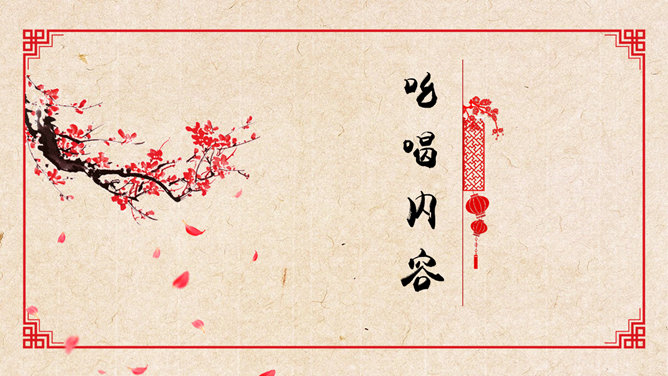 吆喝内容